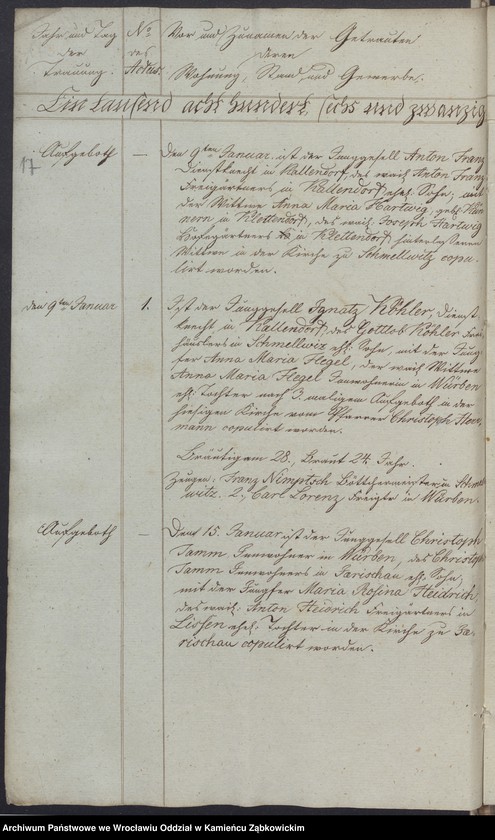 Jahr und Tag
der
Trauung.
No
des
Actus.
Vor und Zunamen der Getrauten
deren
Wohnung, Stand und Gewerbe.
Ein tausend acht hundert, sechs und zwanzig
17
Aufgeboth — Den 9ten Januar ist der Junggesell Anton Franz
Dienstknecht in Kallendorf, des weil. Anton Franz
Freigärtners in Kallendorf ehel. Sohn, mit
der Wittwe Anna Maria Hartwig, geb.
in Klettendorf, des weil. Joseph Hartwig
in Klettendorf hinterlassenen
Wittwe in der Kirche zu Schmellwitz copu-
lirt worden.
den 9ten Januar 1. Ist der Junggesell Ignatz Köhler, Dienst-
knecht in Kallendorf, des Gottlob Köhler
häuslers in Schmellwiz ehl. Sohn, mit der Jung-
fer Anna Maria Flegel, der weil. Wittwe
Anna Maria Flegel Inwohnerin in Würben
ehl. Tochter nach 3. maligem Aufgeboth in der
hiesigen Kirche vom Pfarrer Christoph
mann copulirt worden.
Bräutigam 28, Braut 24 Jahr.
Zeugen: Franz Nimptsch Böttchermeister in Schmell-
witz. 2, Carl Lorenz Freigtr in Würben.
Aufgeboth — Den 15. Januar ist der Junggesell Christoph
Tamm, Inwohner in Würben, des Christoph
Tamm Inwohners in Jarischau ehl. Sohn,
mit der Jungfer Maria Rosina Heidrich
des weil. Anton Heidrich Freigärtners in
Lissen ehel. Tochter in der Kirche zu Ja-
rischau copulirt worden.
Archiwum Państwowe we Wrocławiu Oddział w Kamieńcu Ząbkowickim